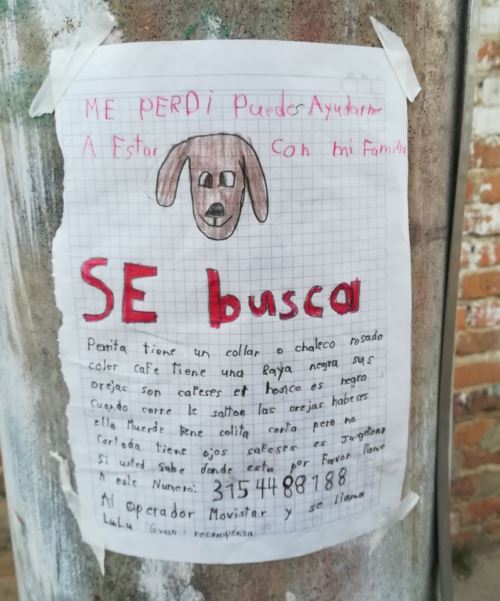 ME PERDi Puedes Ayudarme
A Estar con mi Familia
SE busca
Perrita tiene un collar o chaleco rosado
color cafe tiene una Raya negra sus
orejas son cafeses el hosico es negro
cuando corre le saltan las orejas habeses
ella Muerde tiene colita corta pero no
cortada tiene ojos cafeses es Juguetona
Si usted sabe donde esta por Favor llame
A este Numero: 315 44 88 188
Al operador Movistar y se llama
LuLu Gran recompensa